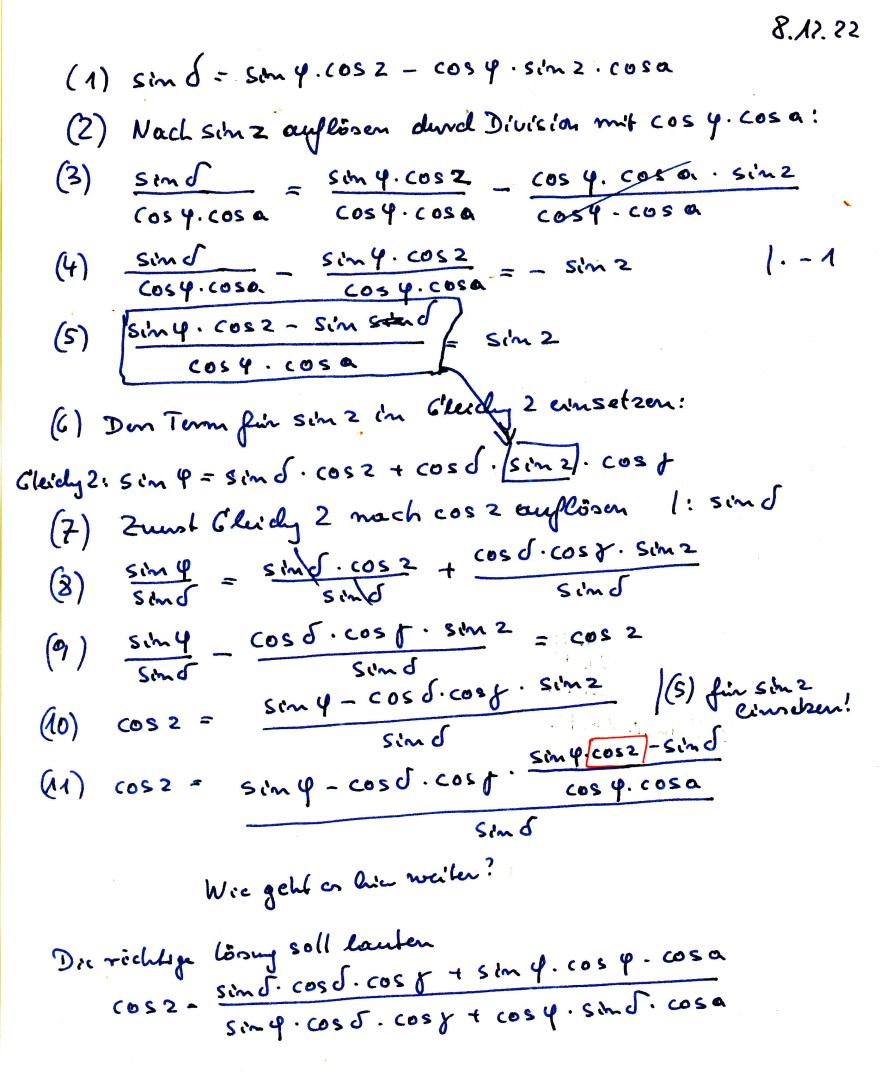 8.12.22
(1) sin δ = sin φ · cos z − cos φ · sin z · cos a
(2) Nach sin z auflösen durch Division mit cos φ · cos a :
(3) sin δ / cos φ · cos a = sin φ · cos z / cos φ · cos a − cos φ · cos a · sin z / cos φ · cos a
(4) sin δ / cos φ · cos a − sin φ · cos z / cos φ · cos a = − sin z | · − 1
(5) sin φ · cos z − sin δ / cos φ · cos a = sin z
(6) Den Term für sin z in Gleichg 2 einsetzen:
Gleichg 2: sin φ = sin δ · cos z + cos δ · sin z · cos γ
(7) Zuerst Gleichg 2 nach cos z auflösen | : sin δ
(8) sin φ / sin δ = sin δ · cos z / sin δ + cos δ · cos γ · sin z / sin δ
(9) sin φ / sin δ − cos δ · cos γ · sin z / sin δ = cos z
(10) cos z = sin φ − cos δ · cos γ · sin z / sin δ | (5) für sin z einsetzen!
(11) cos z = sin φ − cos δ · cos γ · sin φ · cos z − sin δ / cos φ · cos a / sin δ
Wie geht es hier weiter?
Die richtige Lösung soll lauten
cos z = sin δ · cos δ · cos γ + sin φ · cos φ · cos a / sin φ · cos δ · cos γ + cos φ · sin δ · cos a